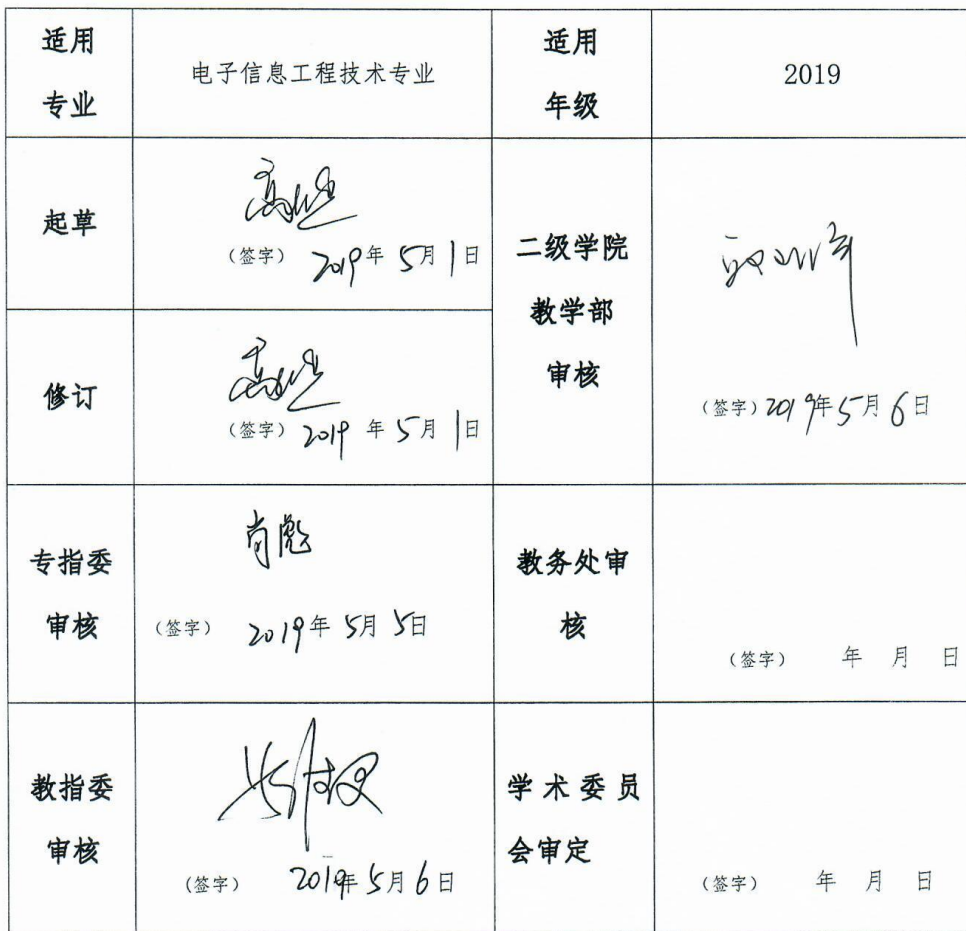 适用
专业
电子信息工程技术专业
适用
年级
2019
起草
(签字) 2019年 5月 1日
二级学院
教学部
审核
(签字) 2019年5月6日
修订
(签字) 2019 年 5月 1日
专指委
审核
肖彪
(签字) 2019年 5月 5日
教务处审
核
(签字) 年 月 日
教指委
审核
(签字) 2019年5月6日
学术委员
会审定
(签字) 年 月 日